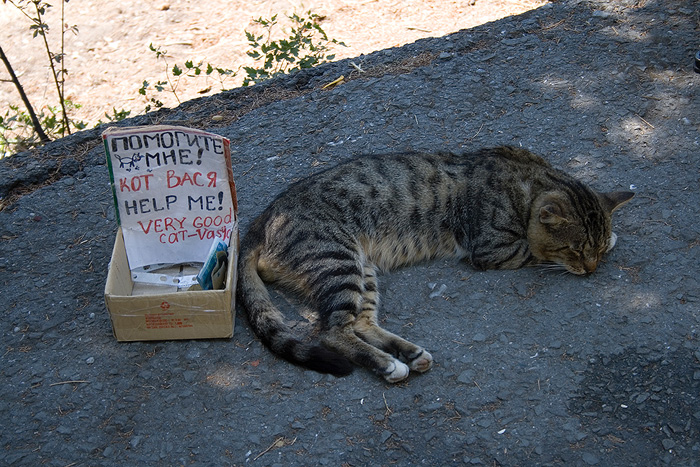 ПОМОГИТЕ
МНЕ!
КОТ ВАСЯ
HELP ME!
VERY GOOD
CAT-Vasya